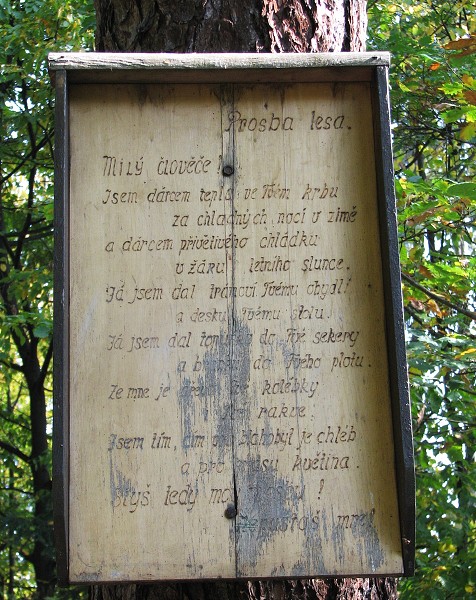 Prosba lesa.
Milý člověče!
Jsem dárcem tepla ve Tvém krbu
za chladných nocí v zimě
a dárcem přívětivého chládku
v žáru letního slunce.
Já jsem dal trámoví Tvému obydlí
a desku Tvému stolu.
Já jsem dal do Tvé sekery
a do Tvého plotu.
Ze mne je kolébky
rakve.
Jsem tím, čím pro je chléb
a pro květina.
Slyš tedy mou prosbu!
Nepustoš mne!